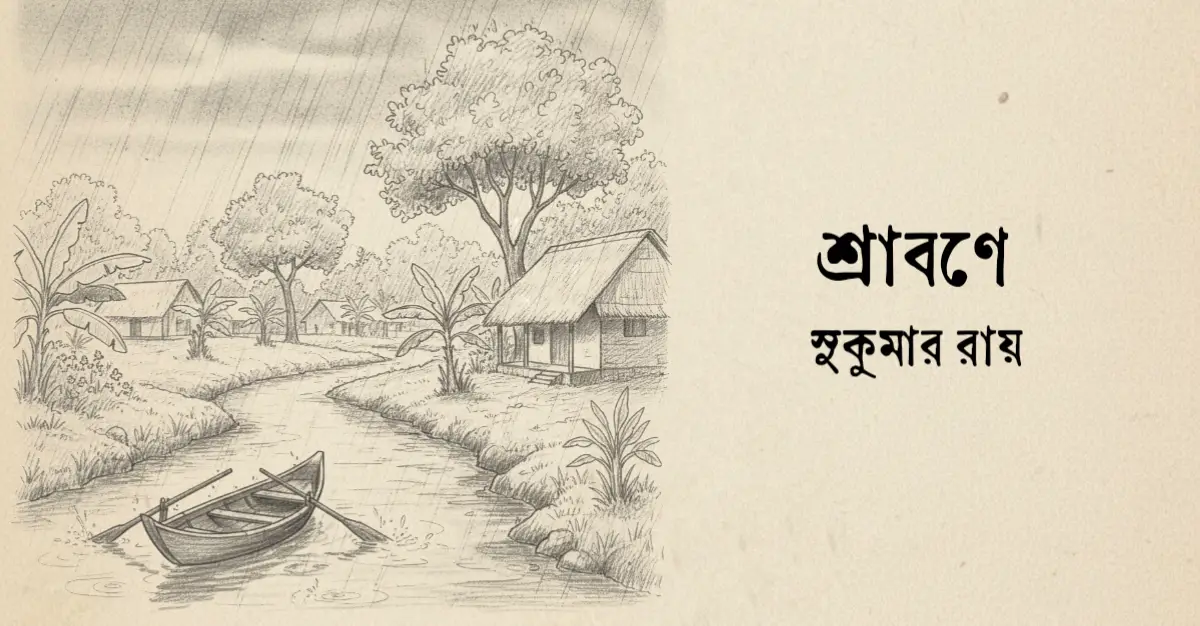 শ্রাবণে
সুকুমার রায়